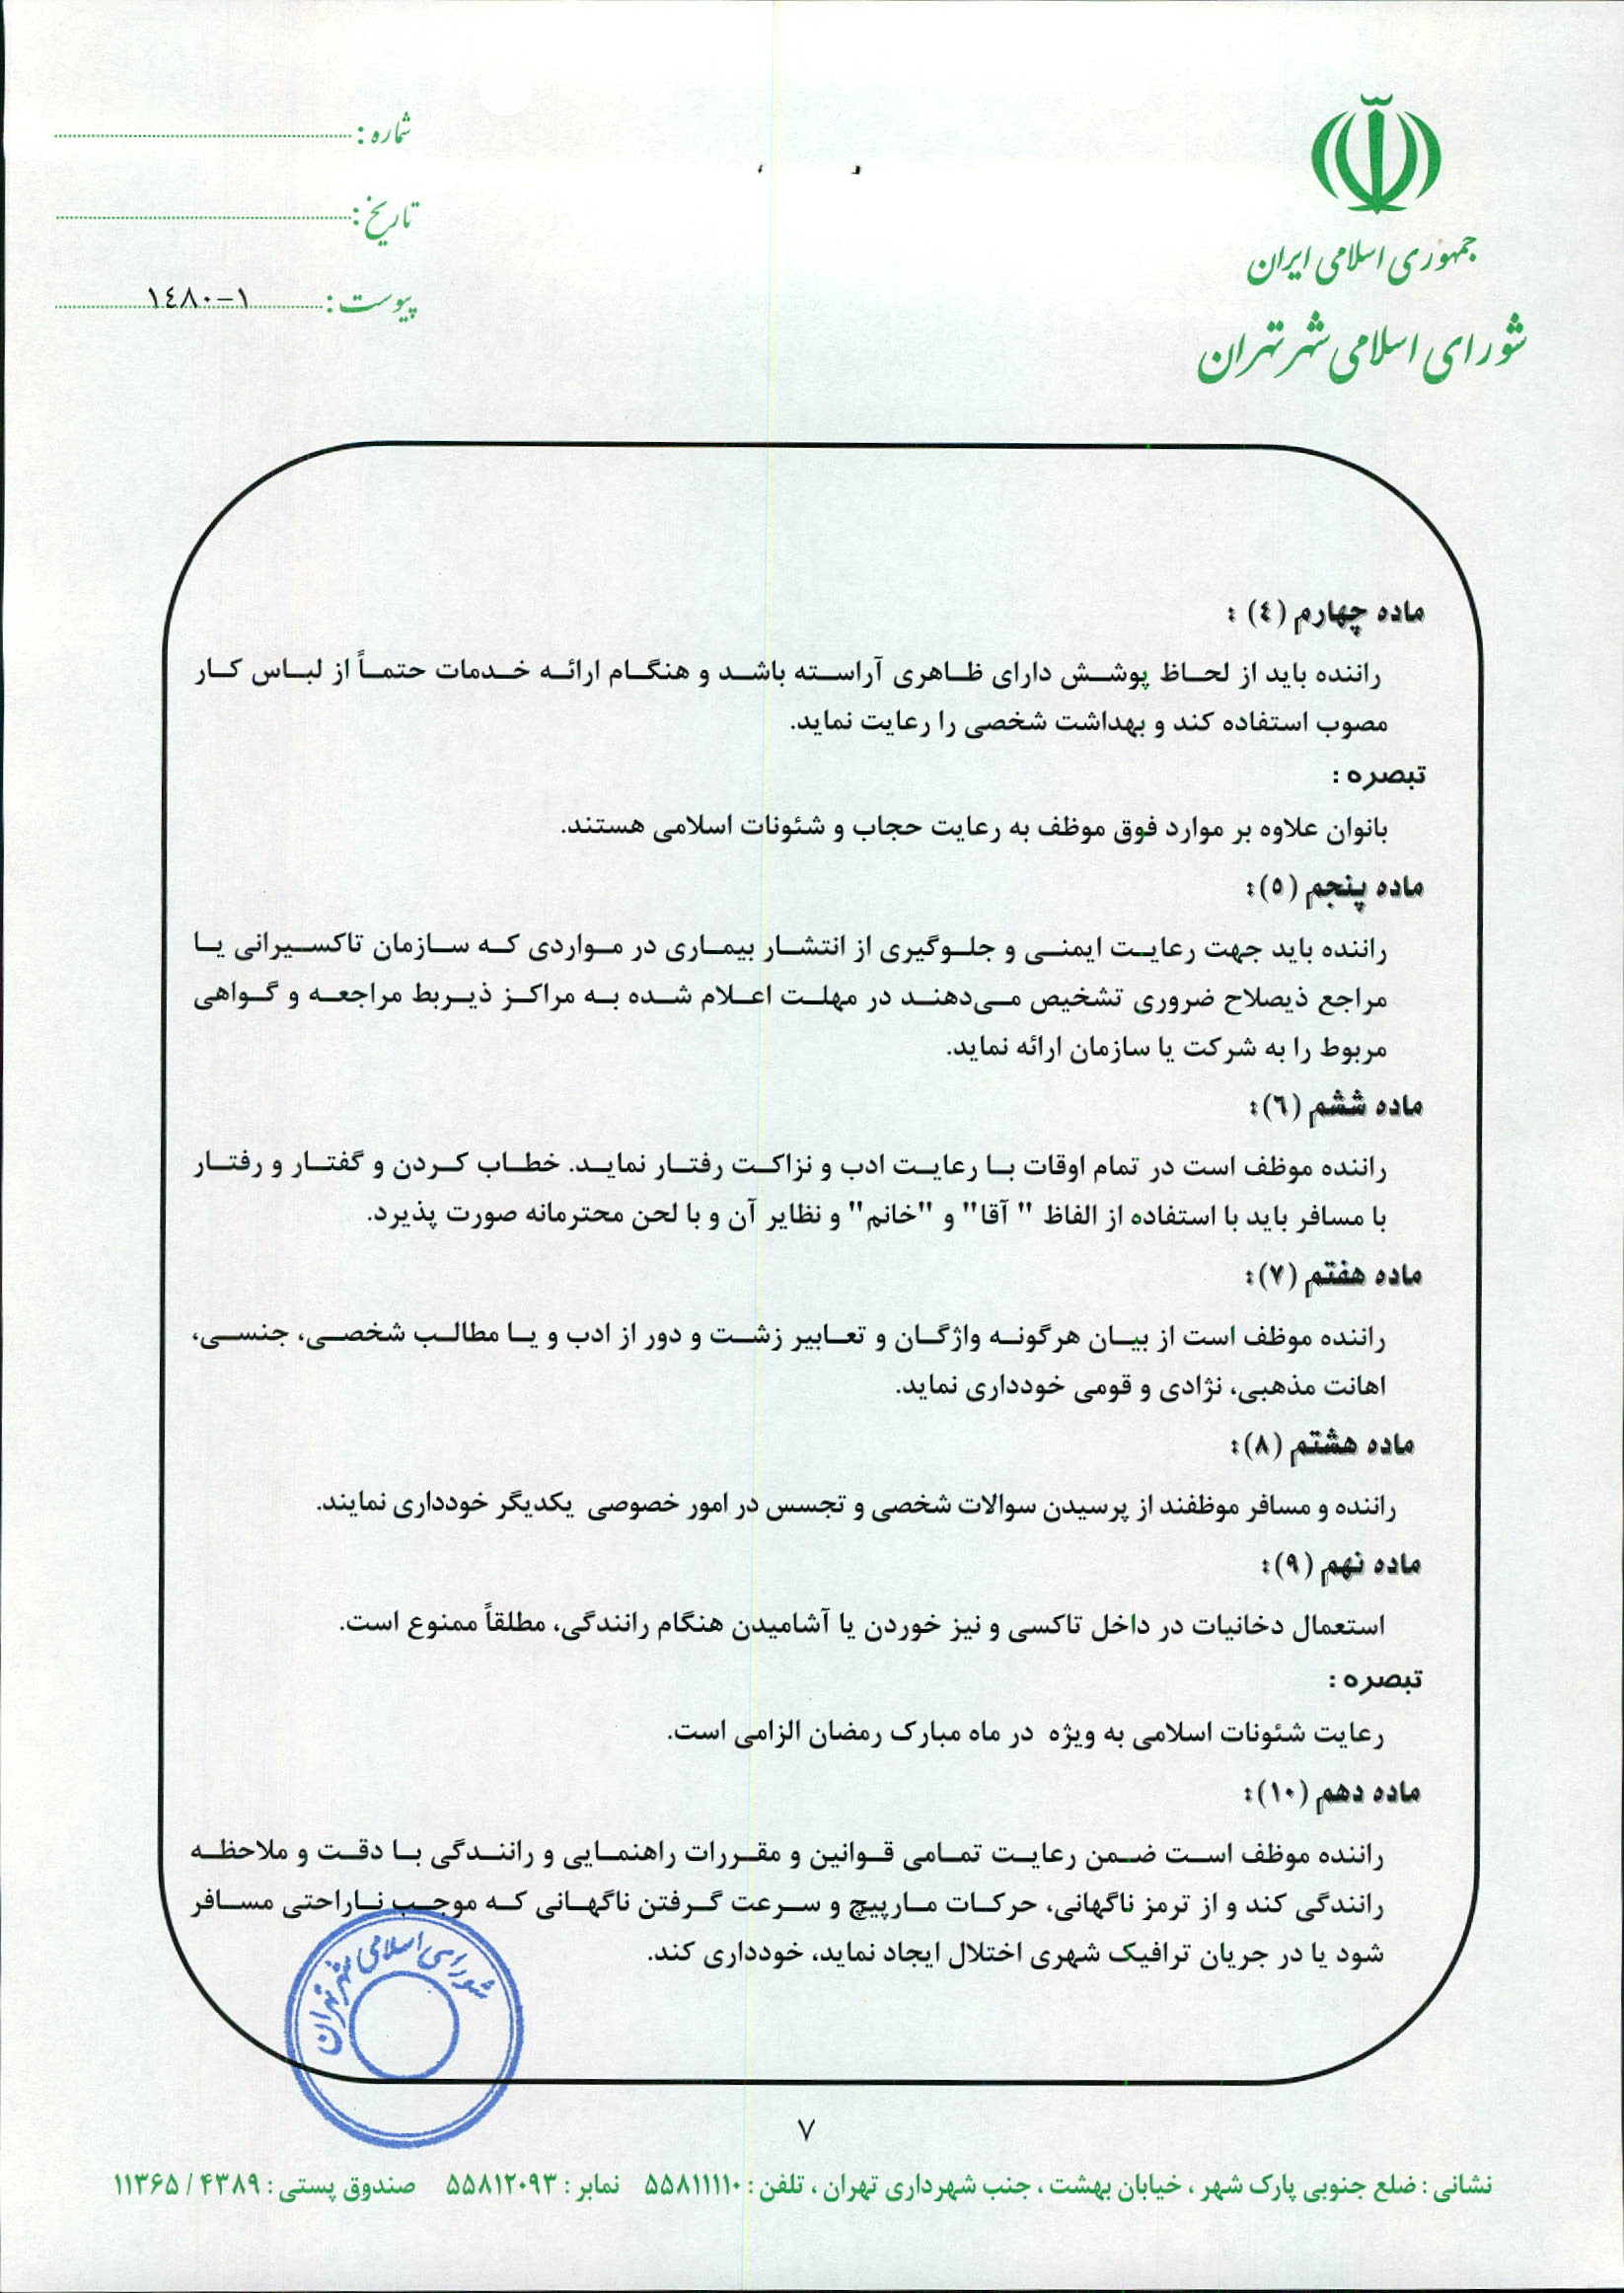 جمهوری اسلامی ایران
شورای اسلامی شهر تهران
شماره :
تاریخ :
پیوست : ١٤٨٠-١
ماده چهارم (٤) :
راننده باید از لحاظ پوشش دارای ظاهری آراسته باشد و هنگام ارائه خدمات حتماً از لباس کار
مصوب استفاده کند و بهداشت شخصی را رعایت نماید.
تبصره :
بانوان علاوه بر موارد فوق موظف به رعایت حجاب و شئونات اسلامی هستند.
ماده پنجم (٥):
راننده باید جهت رعایت ایمنی و جلوگیری از انتشار بیماری در مواردی که سازمان تاکسیرانی یا
مراجع ذیصلاح ضروری تشخیص می‌دهند در مهلت اعلام شده به مراکز ذیربط مراجعه و گواهی
مربوط را به شرکت یا سازمان ارائه نماید.
ماده ششم (٦):
راننده موظف است در تمام اوقات با رعایت ادب و نزاکت رفتار نماید. خطاب کردن و گفتار و رفتار
با مسافر باید با استفاده از الفاظ " آقا" و "خانم" و نظایر آن و با لحن محترمانه صورت پذیرد.
ماده هفتم (٧):
راننده موظف است از بیان هرگونه واژگان و تعابیر زشت و دور از ادب و یا مطالب شخصی، جنسی،
اهانت مذهبی، نژادی و قومی خودداری نماید.
ماده هشتم (٨):
راننده و مسافر موظفند از پرسیدن سوالات شخصی و تجسس در امور خصوصی یکدیگر خودداری نمایند.
ماده نهم (٩):
استعمال دخانیات در داخل تاکسی و نیز خوردن یا آشامیدن هنگام رانندگی، مطلقاً ممنوع است.
تبصره :
رعایت شئونات اسلامی به ویژه در ماه مبارک رمضان الزامی است.
ماده دهم (١٠):
راننده موظف است ضمن رعایت تمامی قوانین و مقررات راهنمایی و رانندگی با دقت و ملاحظه
رانندگی کند و از ترمز ناگهانی، حرکات مارپیچ و سرعت گرفتن ناگهانی که موجب ناراحتی مسافر
شود یا در جریان ترافیک شهری اختلال ایجاد نماید، خودداری کند.
شورای اسلامی شهر تهران
٧
نشانی : ضلع جنوبی پارک شهر ، خیابان بهشت ، جنب شهرداری تهران ، تلفن : ۵۵۸۱۱۱۱۰ نمابر : ۵۵۸۱۲۰۹۳ صندوق پستی : ۴۳۸۹ / ۱۱۳۶۵